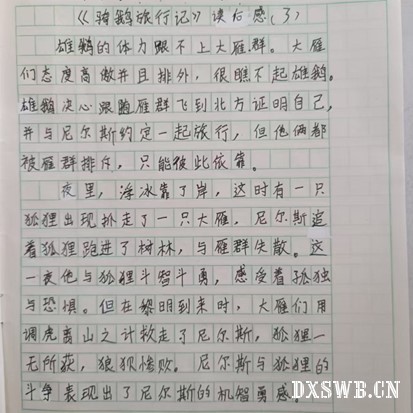 《骑鹅旅行记》读后感(3)
雄鹅的体力跟不上大雁群。大雁
们态度高傲并且排外，很瞧不起雄鹅。
雄鹅决心跟随雁群飞到北方证明自己，
并与尼尔斯约定一起旅行，但他俩都
被雁群排斥，只能彼此依靠。
夜里，浮冰靠了岸，这时有一只
狐狸出现扒走了一只大雁，尼尔斯追
着狐狸跑进了树林，与雁群失散。这
一夜他与狐狸斗智斗勇，感受着孤独
与恐惧。但在黎明到来时，大雁们用
调虎离山之计救走了尼尔斯，狐狸一
无所获，狼狈惨败。尼尔斯与狐狸的
斗争表现出了尼尔斯的机智勇感。
DXSWB.CN